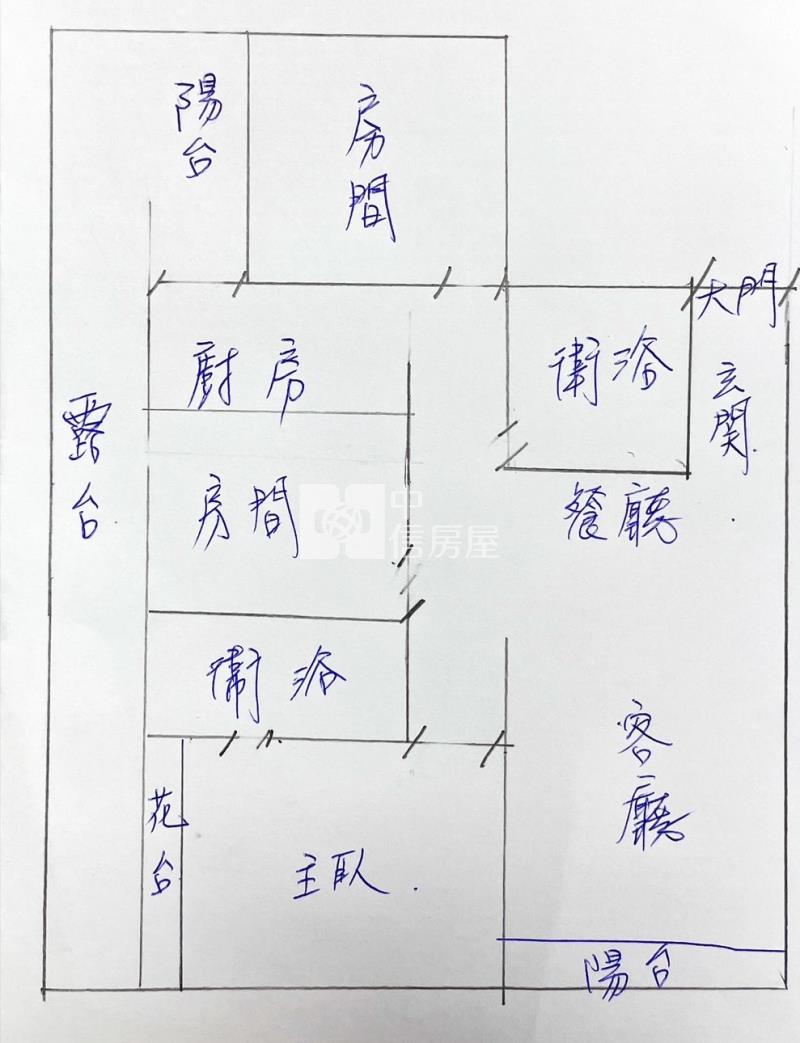 陽台
房間
大門
廚房
衛浴
玄關
露台
房間
餐廳
中信房屋
衛浴
客廳
花台
主臥
陽台